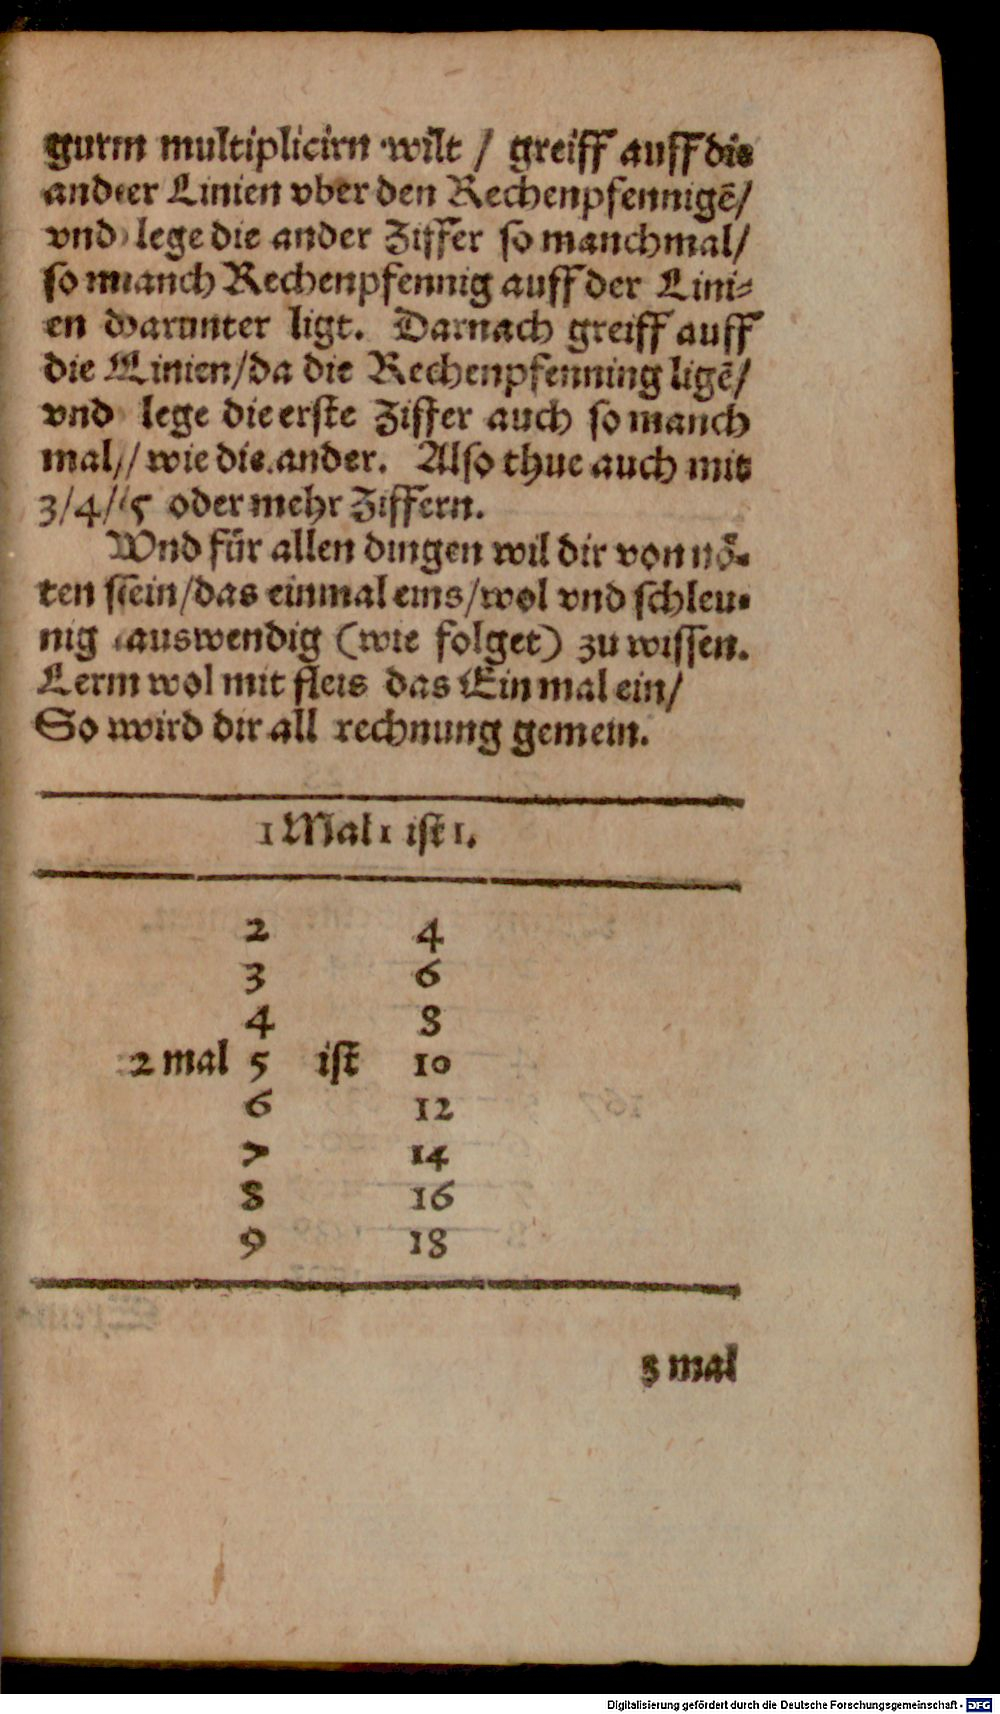 gurn multiplicirn wilt / greiff auff die
ander Linien vber den Rechenpfennigē/
vnd lege die ander Ziffer so manchmal/
so manch Rechenpfennig auff der Lini⸗
en darunter ligt. Darnach greiff auff
die Linien/da die Rechenpfenning ligē/
vnd lege die erste Ziffer auch so manch
mal/ wie die ander. Also thue auch mit
3/4/5 oder mehr Ziffern.
Vnd für allen dingen wil dir von nö⸗
ten sein/das einmal eins/wol vnd schleu⸗
nig auswendig (wie folget) zu wissen.
Lern wol mit fleis das Ein mal ein/
So wird dir all rechnung gemein.
1 Mal 1 ist 1.
2 4
3 6
4 8
2 mal 5 ist 10
6 12
7 14
8 16
9 18
3 mal
Digitalisierung gefördert durch die Deutsche Forschungsgemeinschaft - DFG